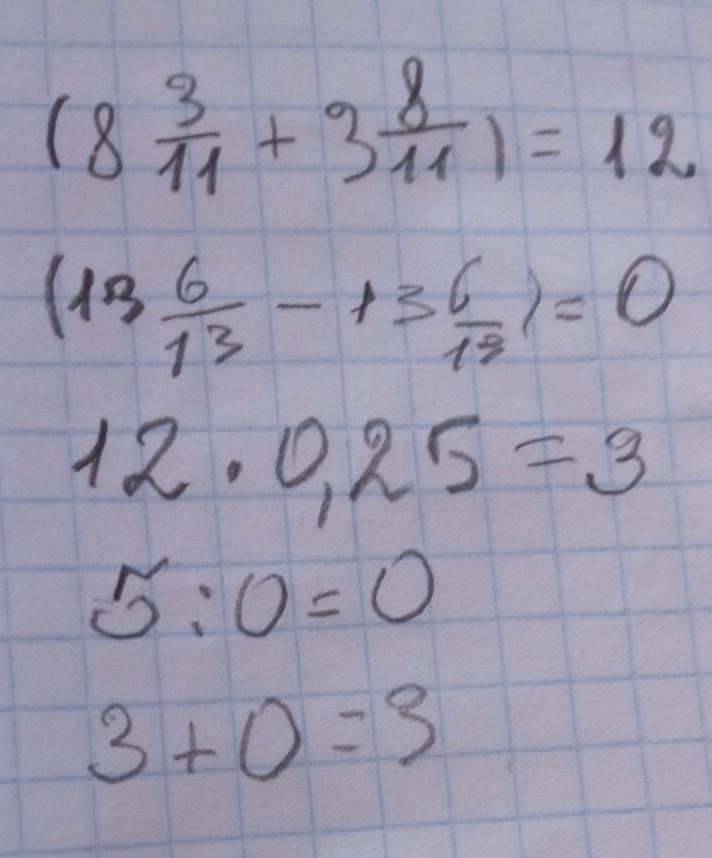 (8 3/11 + 3 8/11) = 12
(13 6/13 - 13 6/13) = 0
12 · 0,25 = 3
5 : 0 = 0
3 + 0 = 3